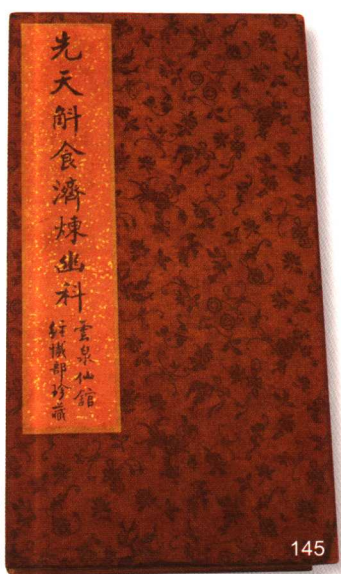 先天斛食濟煉幽科
雲泉仙館
經懺部珍藏
145